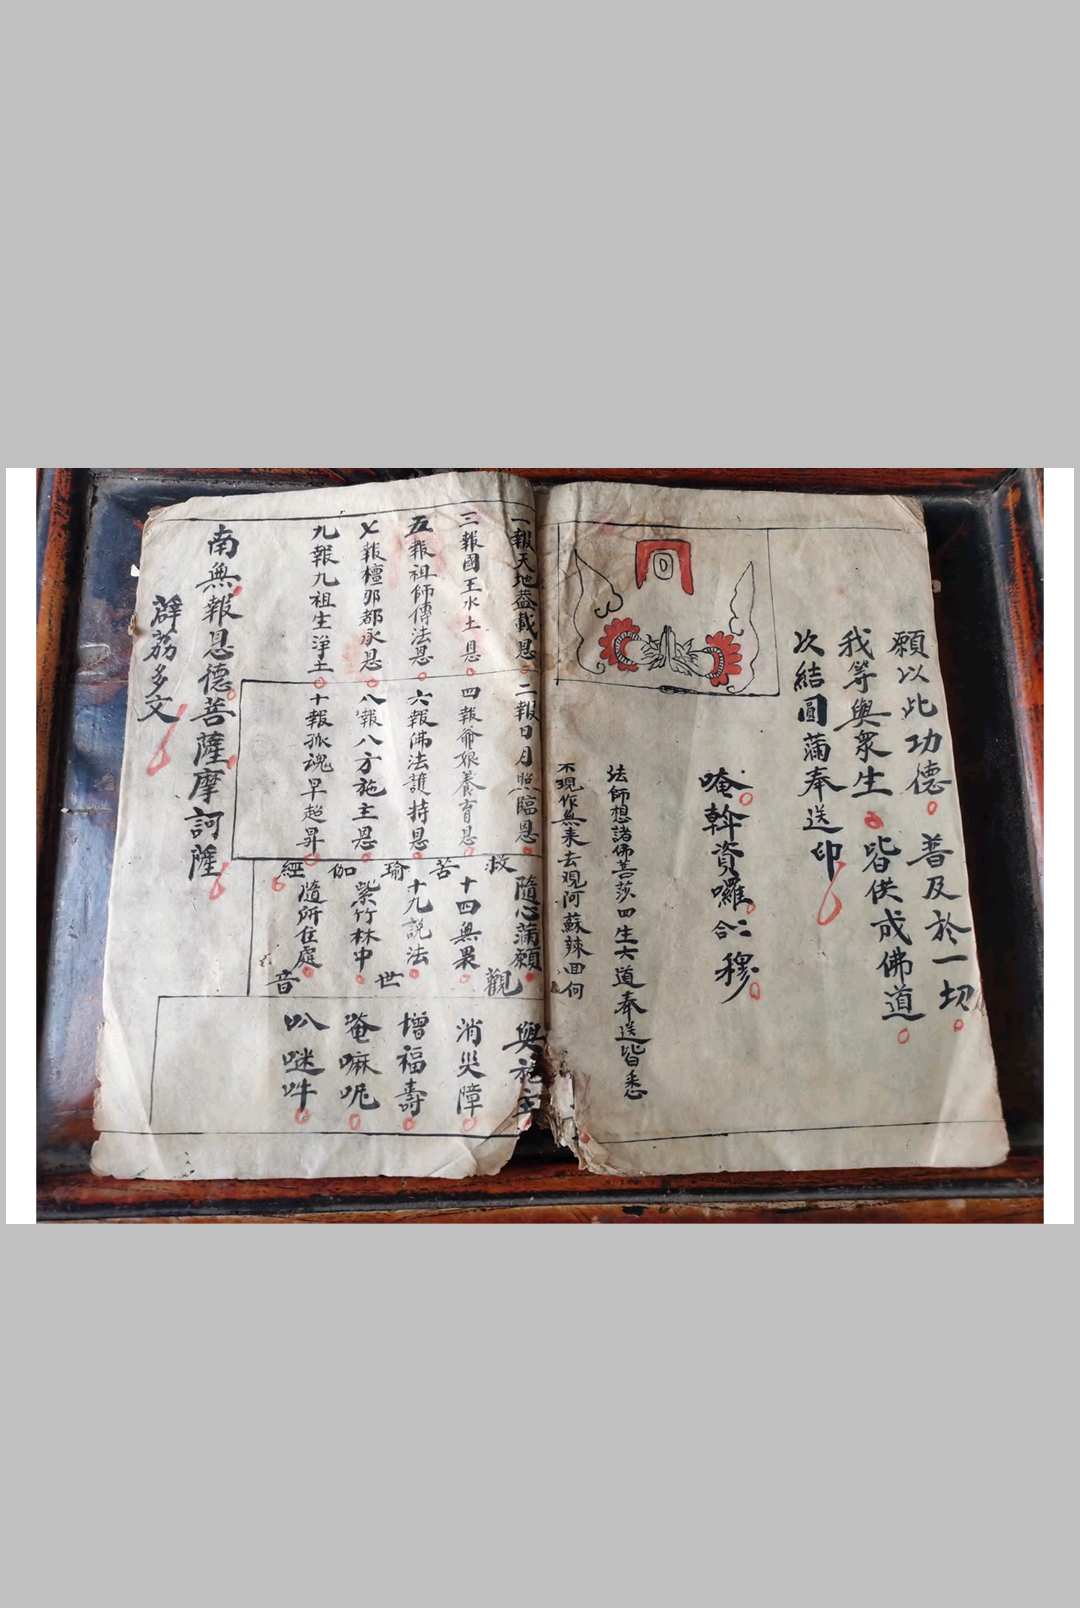 願以此功德 普及於一切
我等與衆生 皆供成佛道
次結圓滿奉送印
唵斡資囉 合二 穆
法師想諸佛菩莎四生六道奉送皆悉
不現作無来去观阿蘇辣回向
一報天地盖載恩 二報日月照臨恩
三報國王水土恩 四報爺娘養育恩
五報祖師傳法恩 六報佛法護持恩
七報檀那都承恩 八報八方施主恩
九報九祖生淨土 十報孤魂早超昇
救苦瑜伽經
隨心滿願 與施主
十四無畏 消災障
十九説法 增福壽
紫竹林中 唵嘛呢
隨所住處 叭㖷吽
觀世音
南無報恩德菩薩摩訶薩
薜荔多文